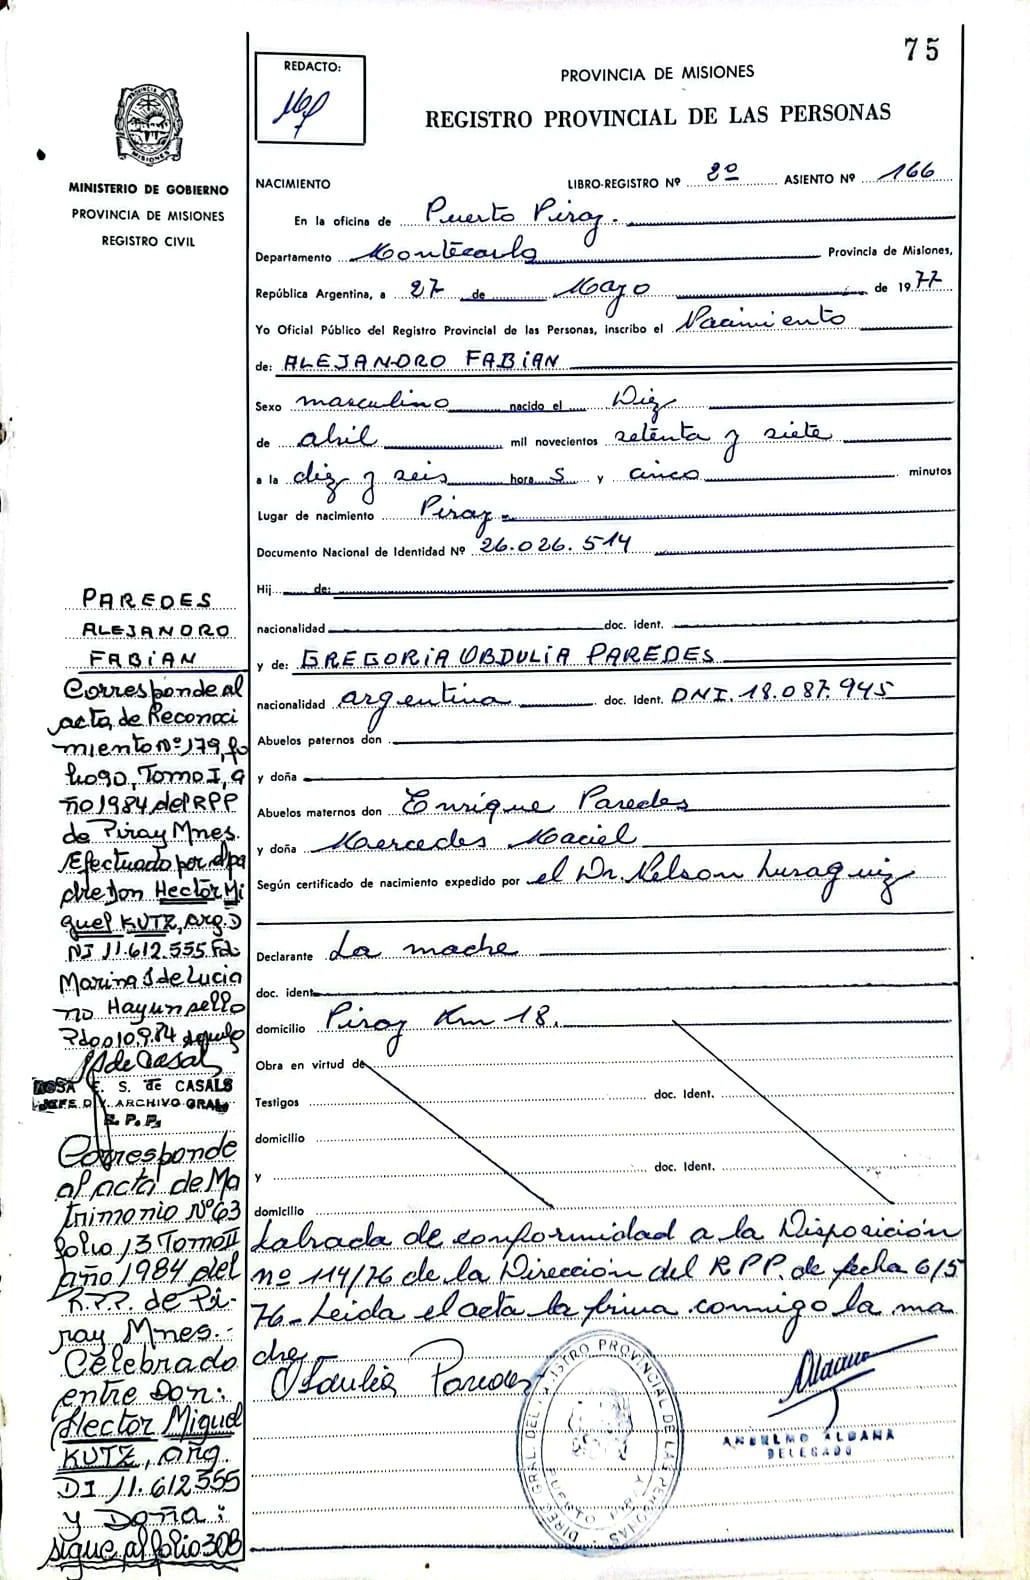 75
REDACTO:
PROVINCIA DE MISIONES
REGISTRO PROVINCIAL DE LAS PERSONAS
PROVINCIA DE
MISIONES
MINISTERIO DE GOBIERNO
PROVINCIA DE MISIONES
REGISTRO CIVIL
NACIMIENTO LIBRO-REGISTRO Nº 2º ASIENTO Nº 166
En la oficina de Puerto Piray.
Departamento Montecarlo Provincia de Misiones,
República Argentina, a 27 de Mayo de 1977
Yo Oficial Público del Registro Provincial de las Personas, inscribo el Nacimiento
de: ALEJANDRO FABIAN
Sexo masculino nacido el Diez
de abril mil novecientos setenta y siete
a la diez y seis hora s y cinco minutos
Lugar de nacimiento Piray
Documento Nacional de Identidad Nº 26.026.514
Hij de:
nacionalidad doc. ident.
y de: GREGORIA OBDULIA PAREDES
nacionalidad argentina doc. ident. DNI. 18.087.945
Abuelos paternos don
y doña
Abuelos maternos don Enrique Paredes
y doña Mercedes Maciel
Según certificado de nacimiento expedido por el Dr. Nelson
Declarante La madre
doc. ident
domicilio Piray Km 18.
Obra en virtud de
Testigos doc. Ident.
domicilio
y doc. Ident.
domicilio
Labrada de conformidad a la Disposición
nº 114/76 de la Dirección del R.P.P. de fecha 6/5
76_ Leida el acta la firma conmigo la ma
dre_
Obdulia Paredes
ANSELMO ALDANA
DELEGADO
DIREC. GRAL. DEL REGISTRO PROVINCIAL DE LAS PERSONAS
PUERTO PIRAY
PAREDES
ALEJANDRO
FABIAN
Corresponde al
acta de Reconoci
miento Nº 179, fo
lio 90, Tomo I, a
ño 1984 del RPP
de Piray Mnes.
Efectuado por el pa
dre don Hector Mi
guel KUTZ, Arg. D
NI 11.612.555 Fdo
Marina S de Lucia
no Hay un sello
Pdas 10.9.84
S de Casals
ROSA E. S. de CASALS
JEFE DIV. ARCHIVO GRAL.
R.P.P.
Corresponde
al acta de Ma
trimonio Nº 63
folio 13 Tomo II
año 1984 del
R.P.P. de Pi-
ray Mnes.-
Celebrado
entre Don:
Hector Miguel
KUTZ, arg.
DI 11.612.555
y Doña:
sigue al folio 308